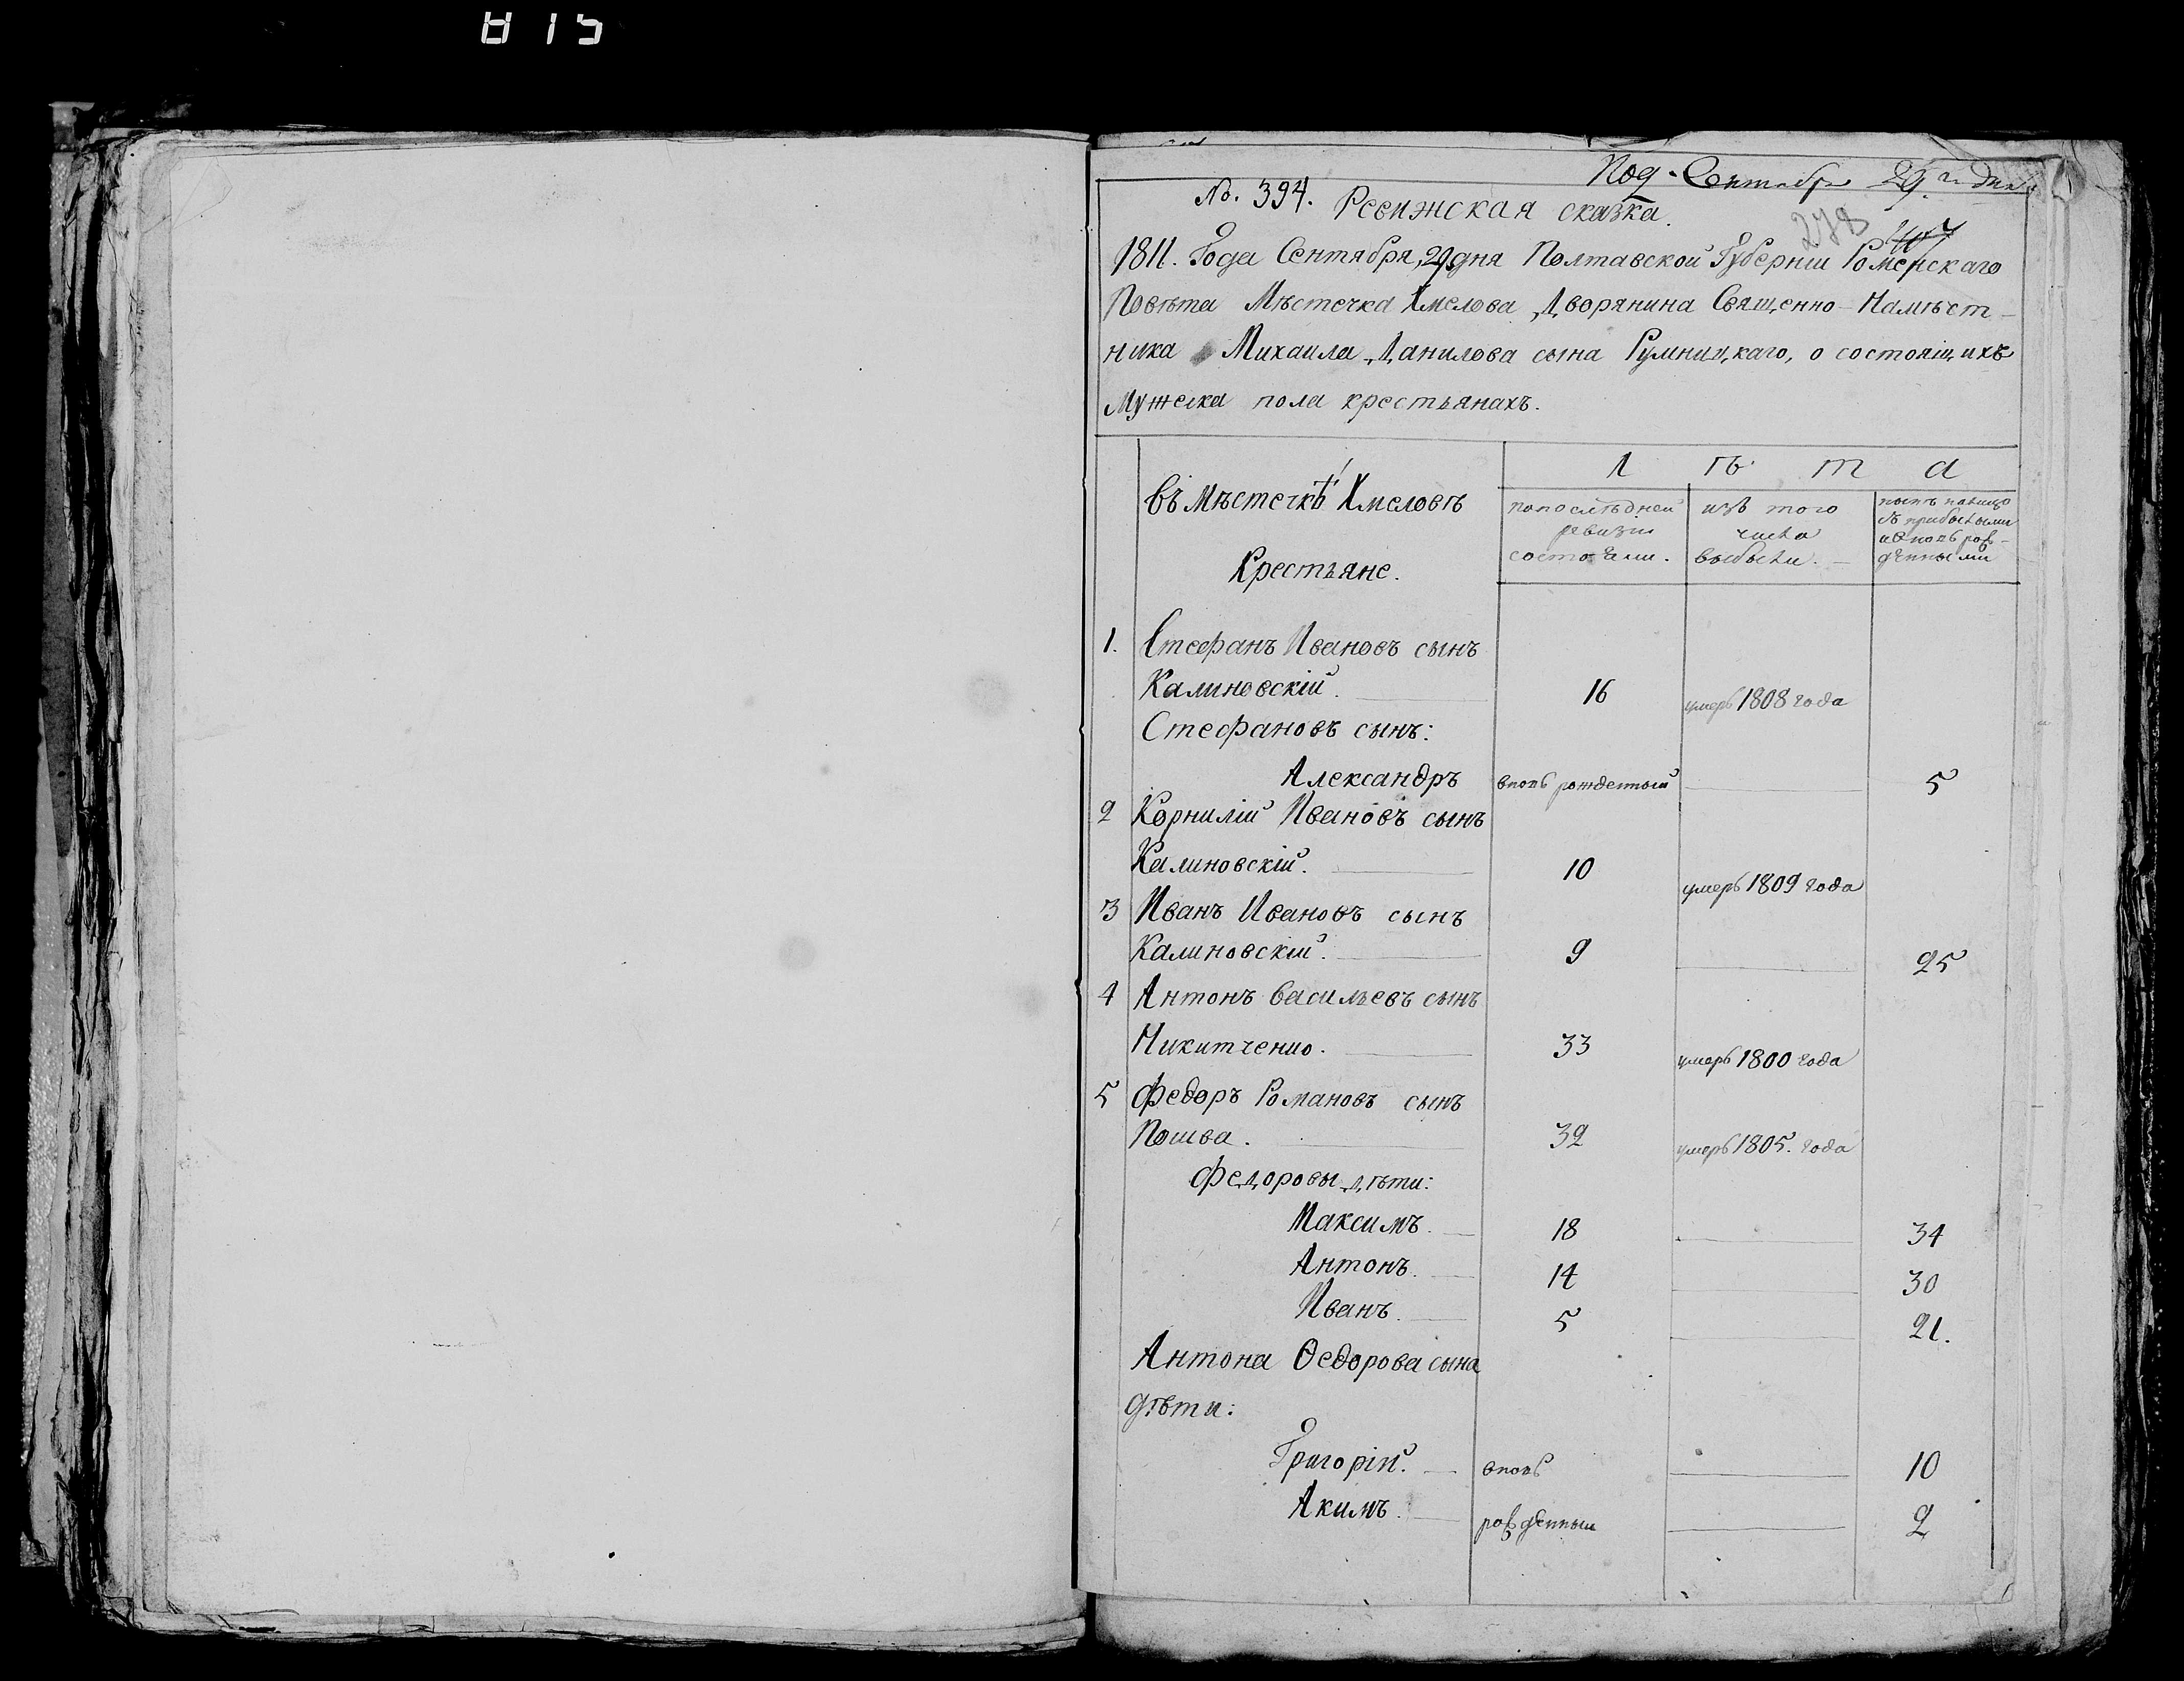 815
Под. Сентября 29го дня
№. 394. Ревижская сказка.
278
1811. Года Сентября, 29 дня Полтавской Губернiи Роменскаго
Повѣта Мѣстечка Хмелова Дворянина Священно-Намѣст-
ника Михаила Данилова сына Румницкаго, о состоящихъ
Мужеска пола крестьянахъ.
въ Мѣстечкѣ Хмеловѣ
Крестьяне.
Л ѣ т а
по послѣдней ревизiи состояли.
изъ того числа выбыли.
нынѣ налицо съ прибылыми и вновь рожденными
1. Стефанъ Ивановъ сынъ
Калиновскiй. 16 умеръ 1808 года
Стефановъ сынъ:
Александръ вновь рожденный 5
2 Корнилiй Ивановъ сынъ
Калиновскiй. 10 умеръ 1809 года
3 Иванъ Ивановъ сынъ
Калиновскiй. 9 25
4 Антонъ Васильевъ сынъ
Никитченко. 33 умеръ 1800 года
5 Федоръ Романовъ сынъ
Пошва. 32 умеръ 1805. года
Федоровы дѣти:
Максимъ. 18 34
Антонъ. 14 30
Иванъ. 5 21.
Антона Ѳедорова сына
дѣти:
Григорiй. вновь 10
Акимъ. рожденныи 2